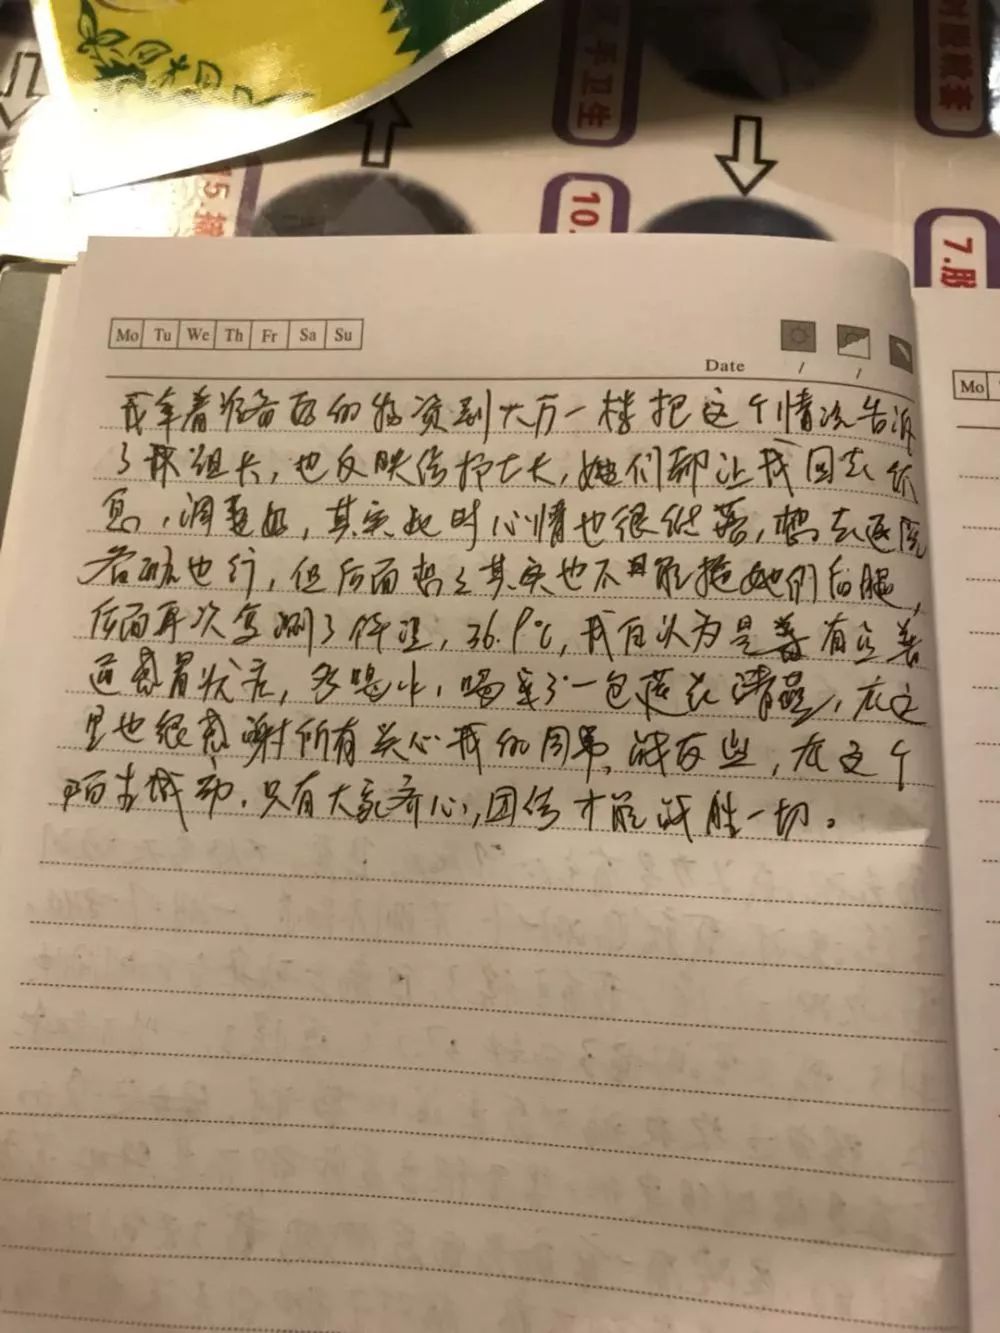 手卫生
10.
7.
15.
Mo Tu We Th Fr Sa Su
Date / /
Mo
我拿着准备好的物资到大厅一楼把这个情况告诉
了联组长,也反映给护士长,她们都让我回去休
息,调整好,其实此时心情也很低落,想去返院
也行,但后面想了其实也不能拖她们后腿,
后面再次复测了体温,36.9℃,我自认为是有点普
通感冒状态,多喝水,喝了一包莲花清瘟,在这
里也很感谢所有关心我的同事,战友些,在这个
陌生城市,只有大家齐心,团结才能战胜一切。